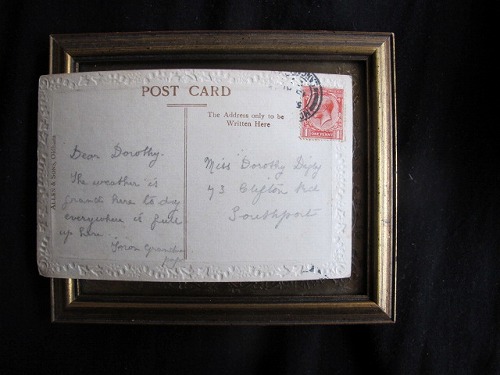 POST CARD
The Address only to be
Written Here
ALLEN & SONS, Oldham
Dear Dorothy.
The weather is
grand here to day
everywhere is full
up here.
Your Grandpa
Miss Dorothy Digby
73 Clifton Rd
Southport
ONE PENNY